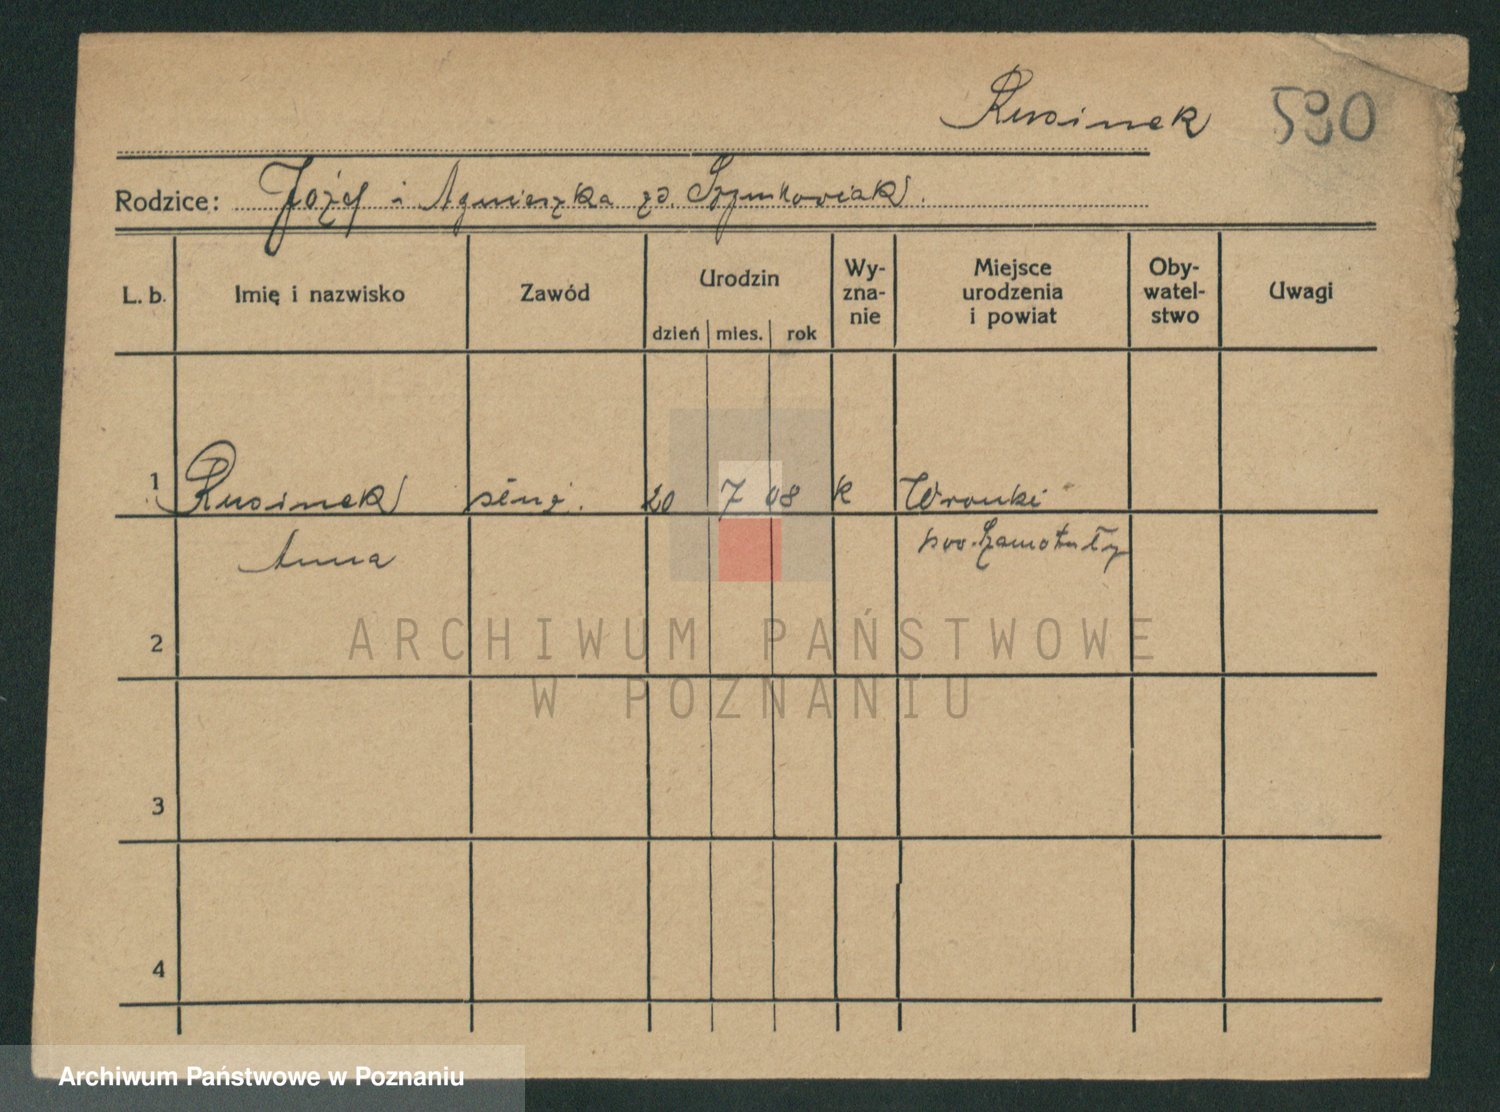 Rusinek 590
Rodzice: Józef i Agnieszka zd. Szymkowiak.
L. b. Imię i nazwisko Zawód Urodzin dzień mies. rok Wy-zna-nie Miejsce urodzenia i powiat Oby-watel-stwo Uwagi
1 Rusinek 20 7 08 k Wronki
Anna pow. Szamotuły
ARCHIWUM PAŃSTWOWE
2
W POZNANIU
3
4
Archiwum Państwowe w Poznaniu